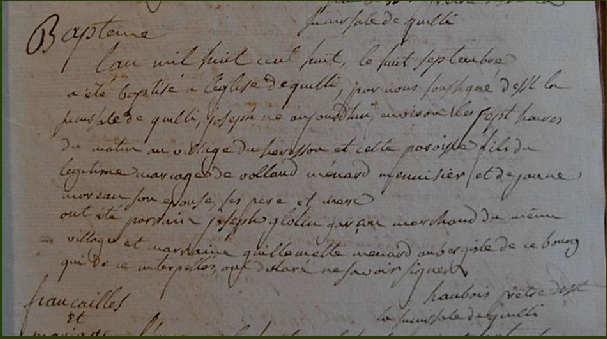 succursale de quilli
Bapteme
L'an mil huit cent huit, le huit septembre
a été baptisé a l'église de quilli, par nous soussigné desst la
succursale de quilli, joseph né aujourdhui environ les sept heures
du matin au village du herisson en cette paroisse fils du
legitime mariage de volland ménard menuisier et de jeanne
moreau son epouse, ses pere et mere
ont été parrain joseph glotin garcon marchand du même
village et marraine guillemette menard aubergiste de ce bourg
qui de ce interpellés, ont declaré ne savoir signer
haubois prêtre desst
la succursale de quilli
fiancailles
et
mariage